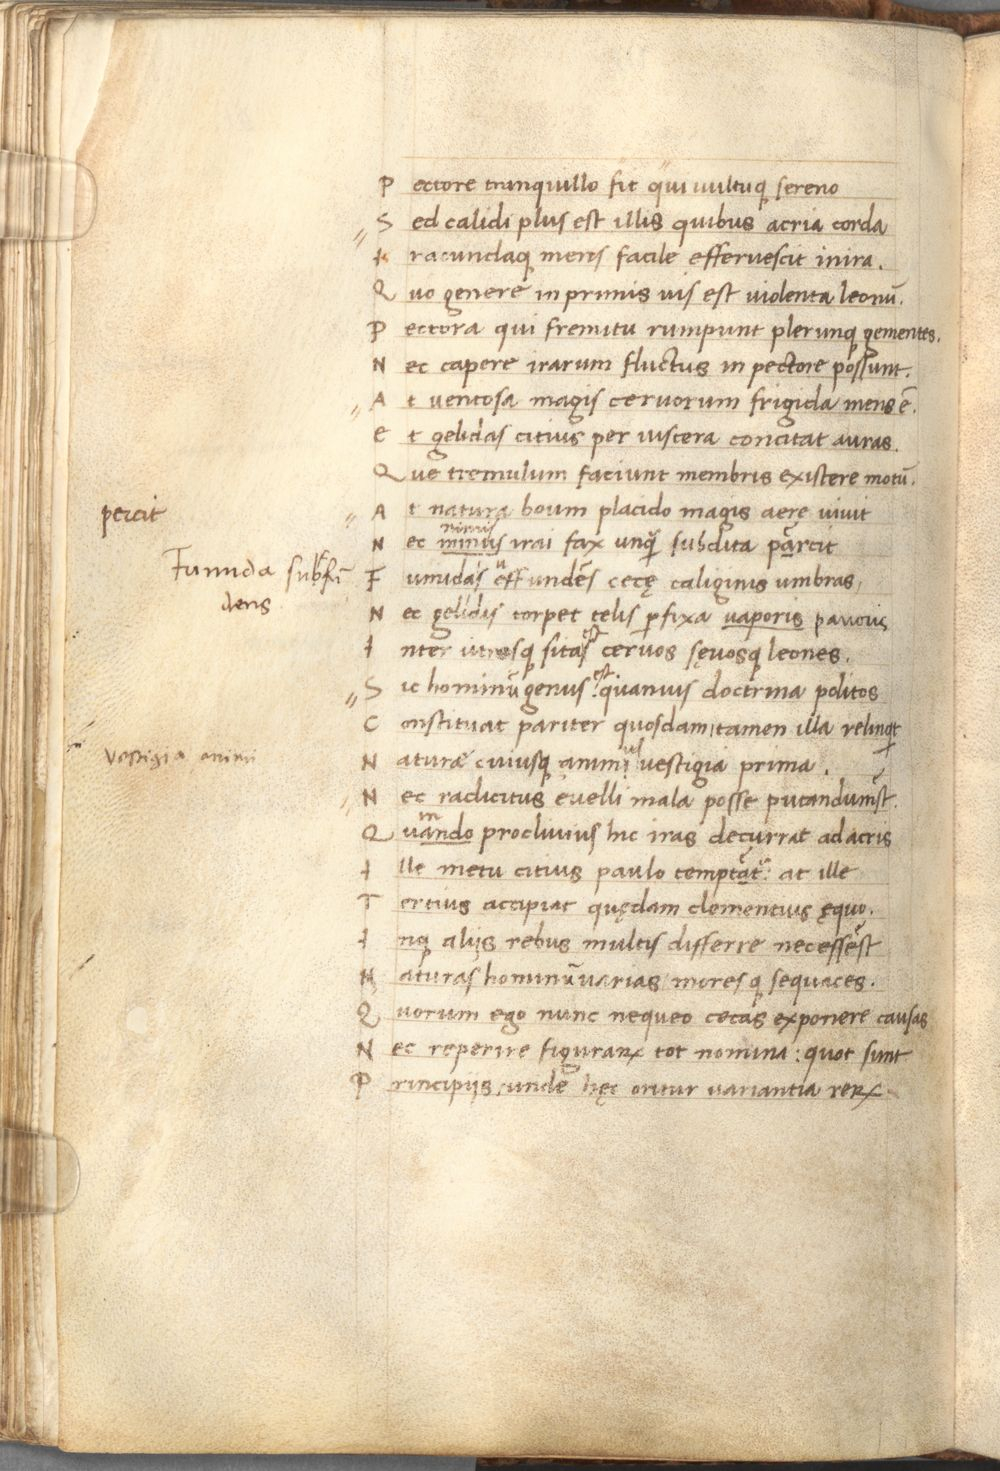 P ectore tranquillo fit qui uultuq sereno
S ed calidi plus est illis quibus acria corda
I racundaq mens facile efferuescit inira.
Q uo genere in primis uis est uiolenta leonū.
P ectora qui fremitu rumpunt plerunq gementes.
N ec capere irarum fluctus in pectore possunt.
A t uentosa magis ceruorum frigida mens ē.
E t gelidas citius per uiscera concitat auras.
Q ue tremulum faciunt membris existere motū.
percit
A t natura boum placido magis aere uiuit
nimis
N ec minus irai fax unq̄ subdita parcit
Fumida subfū
dens
F umidas effundēs cecę caliginis umbras,
N ec gelidis torpet telis pfixa uaporis pauoris
est
I nter utrosq sitas ceruos sęuosq leones.
est
S ic hominū genus: quanuis doctrina politos
C onstituat pariter quosdam, tamen illa relinqt
vestigia animi
N aturæ cuiusq animi vestigia prima.
N ec radicitus euelli mala posse putandumst.
in
Q uando procliuius hic iras decurrat ad acris
I lle metu citius paulo temptat: at ille
T ertius accipiat quędam clementius ęquo.
I nq aliis rebus multis differre necessest
N aturas hominū uarias, moresq sequaces.
Q uorum ego nunc nequeo cecas exponere causas
N ec reperire figuraꝝ tot nomina: quot sunt
P rincipiis, unde hęc oritur variantia reꝝ